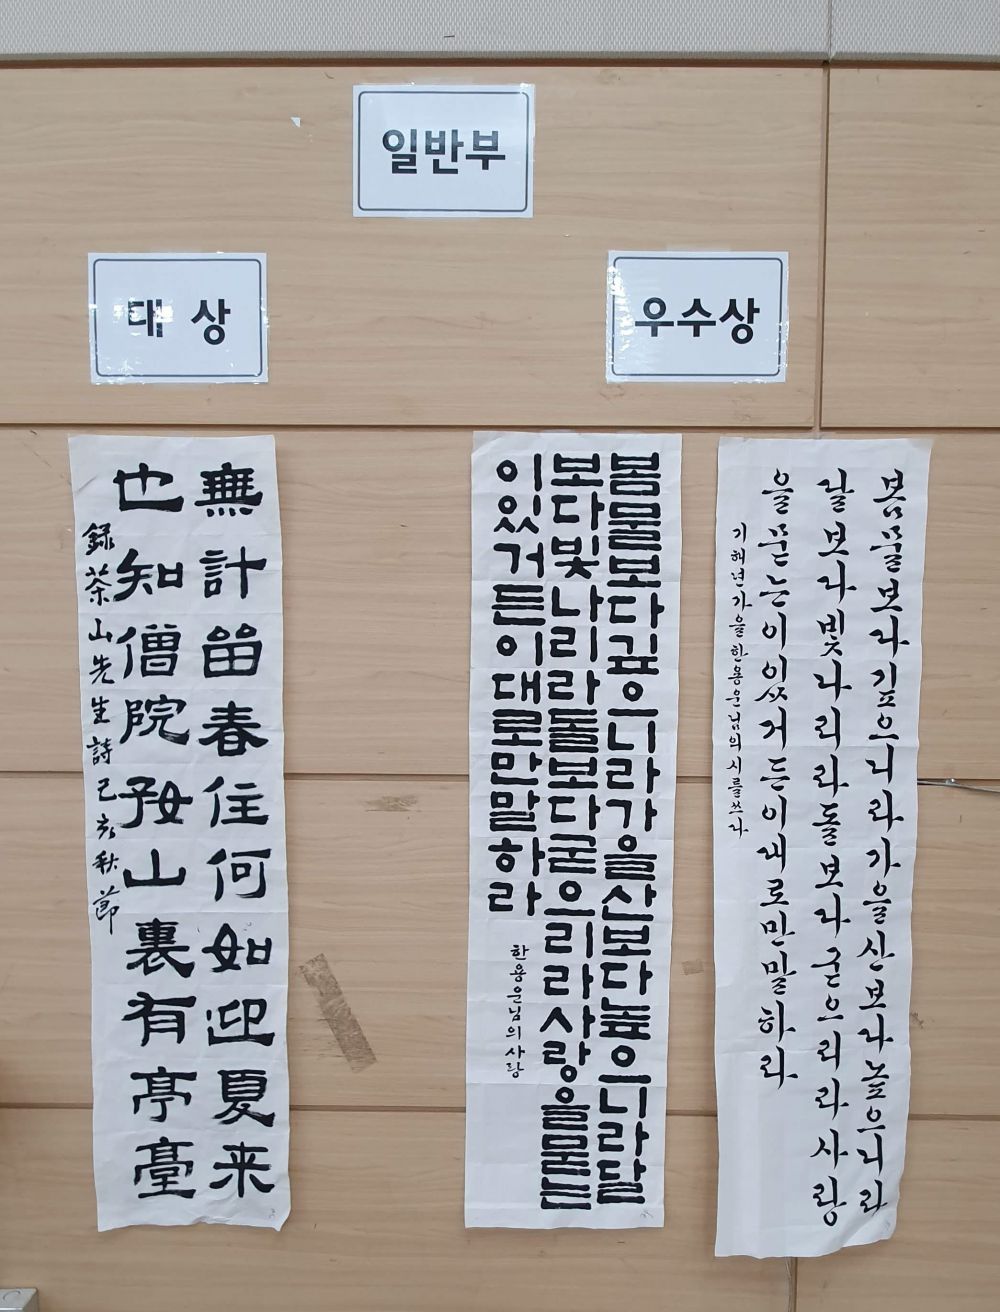 일반부
대 상
우수상
無計留春住何如迎夏来
也知僧院好山裏有亭臺
録茶山先生詩己亥秋節
봄물보다깊으니라가을산보다높으니라달
보다빛나리라돌보다굳으리라사랑을묻는
이있거든이대로만말하라
한용운님의사랑
봄물보다깊으니라가을산보다높으니라
달보다빛나리라돌보다굳으리라사랑
을묻는이있거든이대로만말하라
기해년가을한용운님의시를쓰다